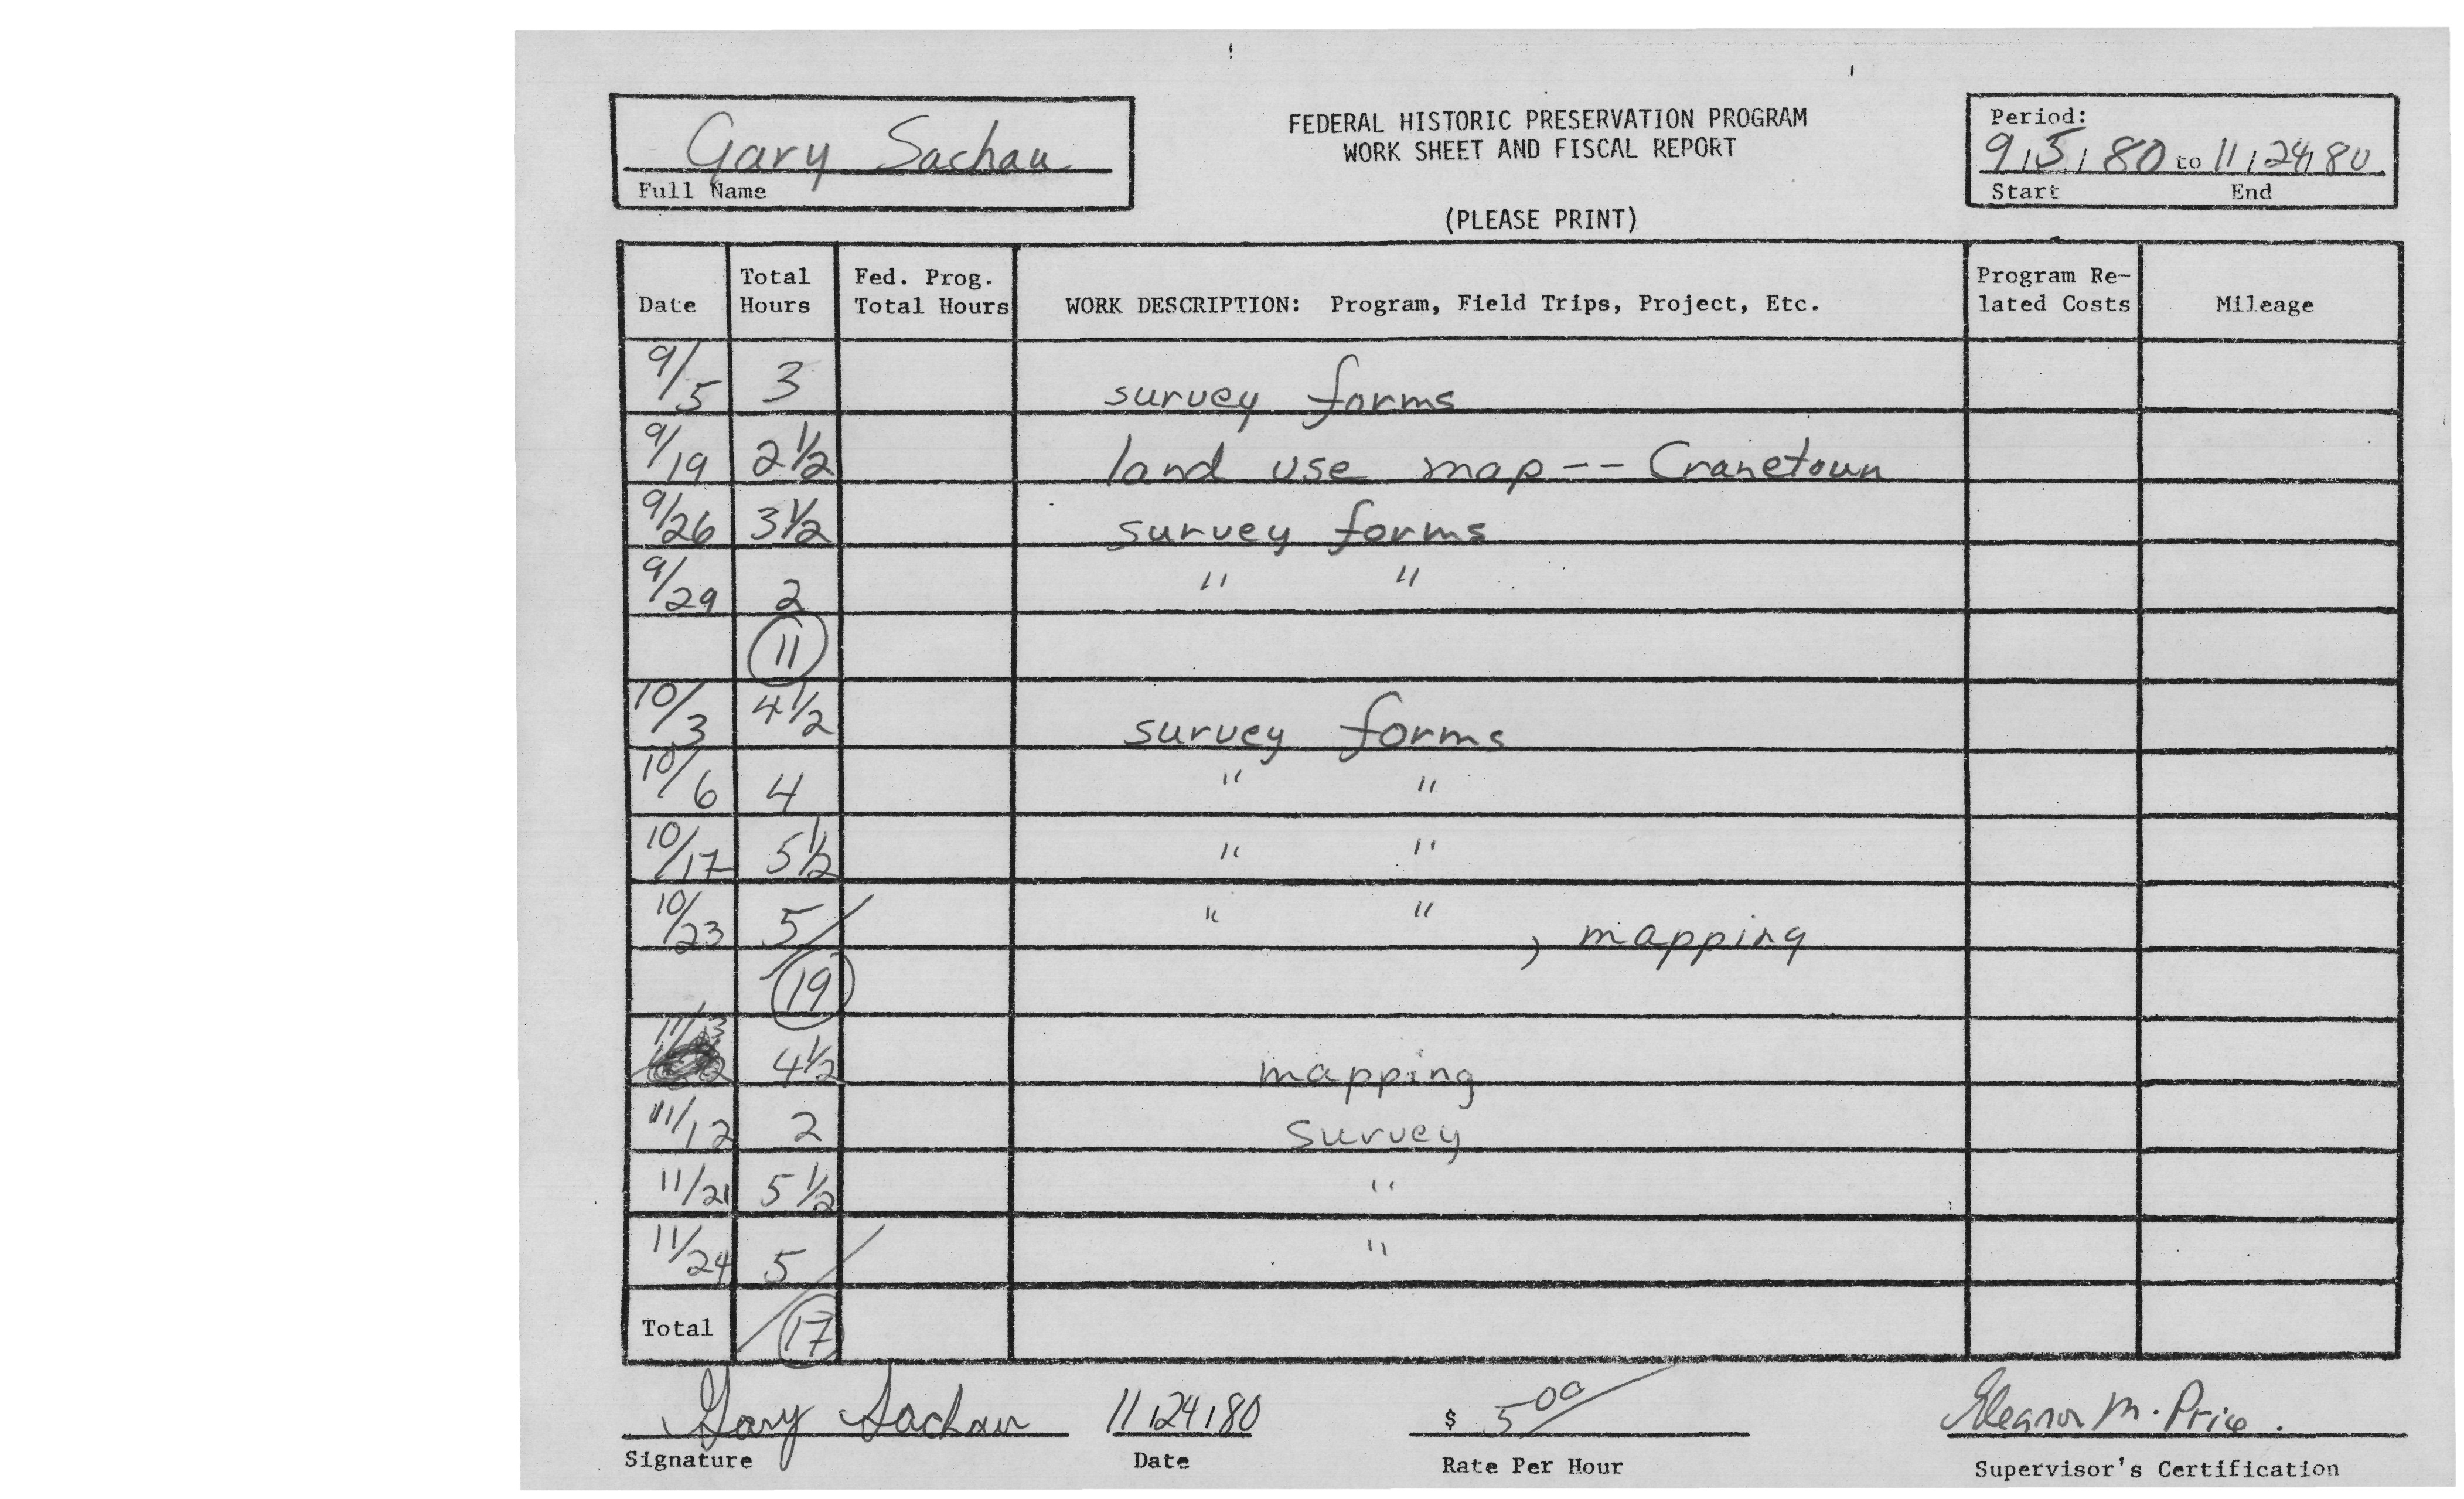 Gary Sachau
Full Name
FEDERAL HISTORIC PRESERVATION PROGRAM
WORK SHEET AND FISCAL REPORT
(PLEASE PRINT)
Period:
9/5/80 to 11/24/80
Start End
Date Total Hours Fed. Prog. Total Hours WORK DESCRIPTION: Program, Field Trips, Project, Etc. Program Re- lated Costs Mileage
9/5 3 survey forms
9/19 2 1/2 land use map -- Cranetown
9/26 3 1/2 survey forms
9/29 2 " "
11
10/3 4 1/2 survey forms
10/6 4 " "
10/17 5 1/2 " "
10/23 5 " " , mapping
19
11/3 4 1/2 mapping
11/12 2 survey
11/21 5 1/2 "
11/24 5 "
Total 17
Gary Sachau 11/24/80 $ 5 00 Eleanor M. Price.
Signature Date Rate Per Hour Supervisor's Certification